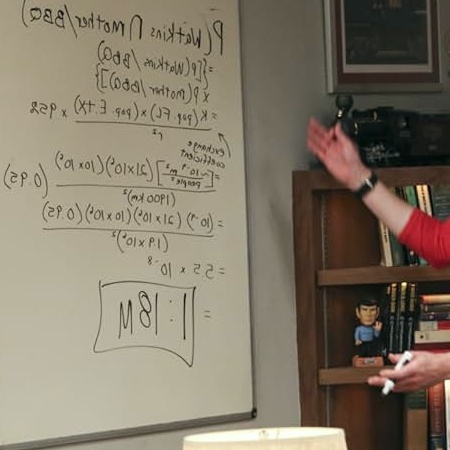 P(Watkins ∩ Mother/BBQ)
= {[P(Watkins/BBQ)
x P(Mother/BBQ)]}
= K(pop. FL) x (pop. E. TX) x 95%
r²
exchange
coefficient
= [~10⁻⁹ m²/people²] (21x10⁶)(10x10⁶) (0.95)
(1900 km)²
= (10⁻⁹)(21x10⁶)(10x10⁶)(0.95)
(1.9x10⁶)²
= 5.5 x 10⁻⁸
= 1:18M